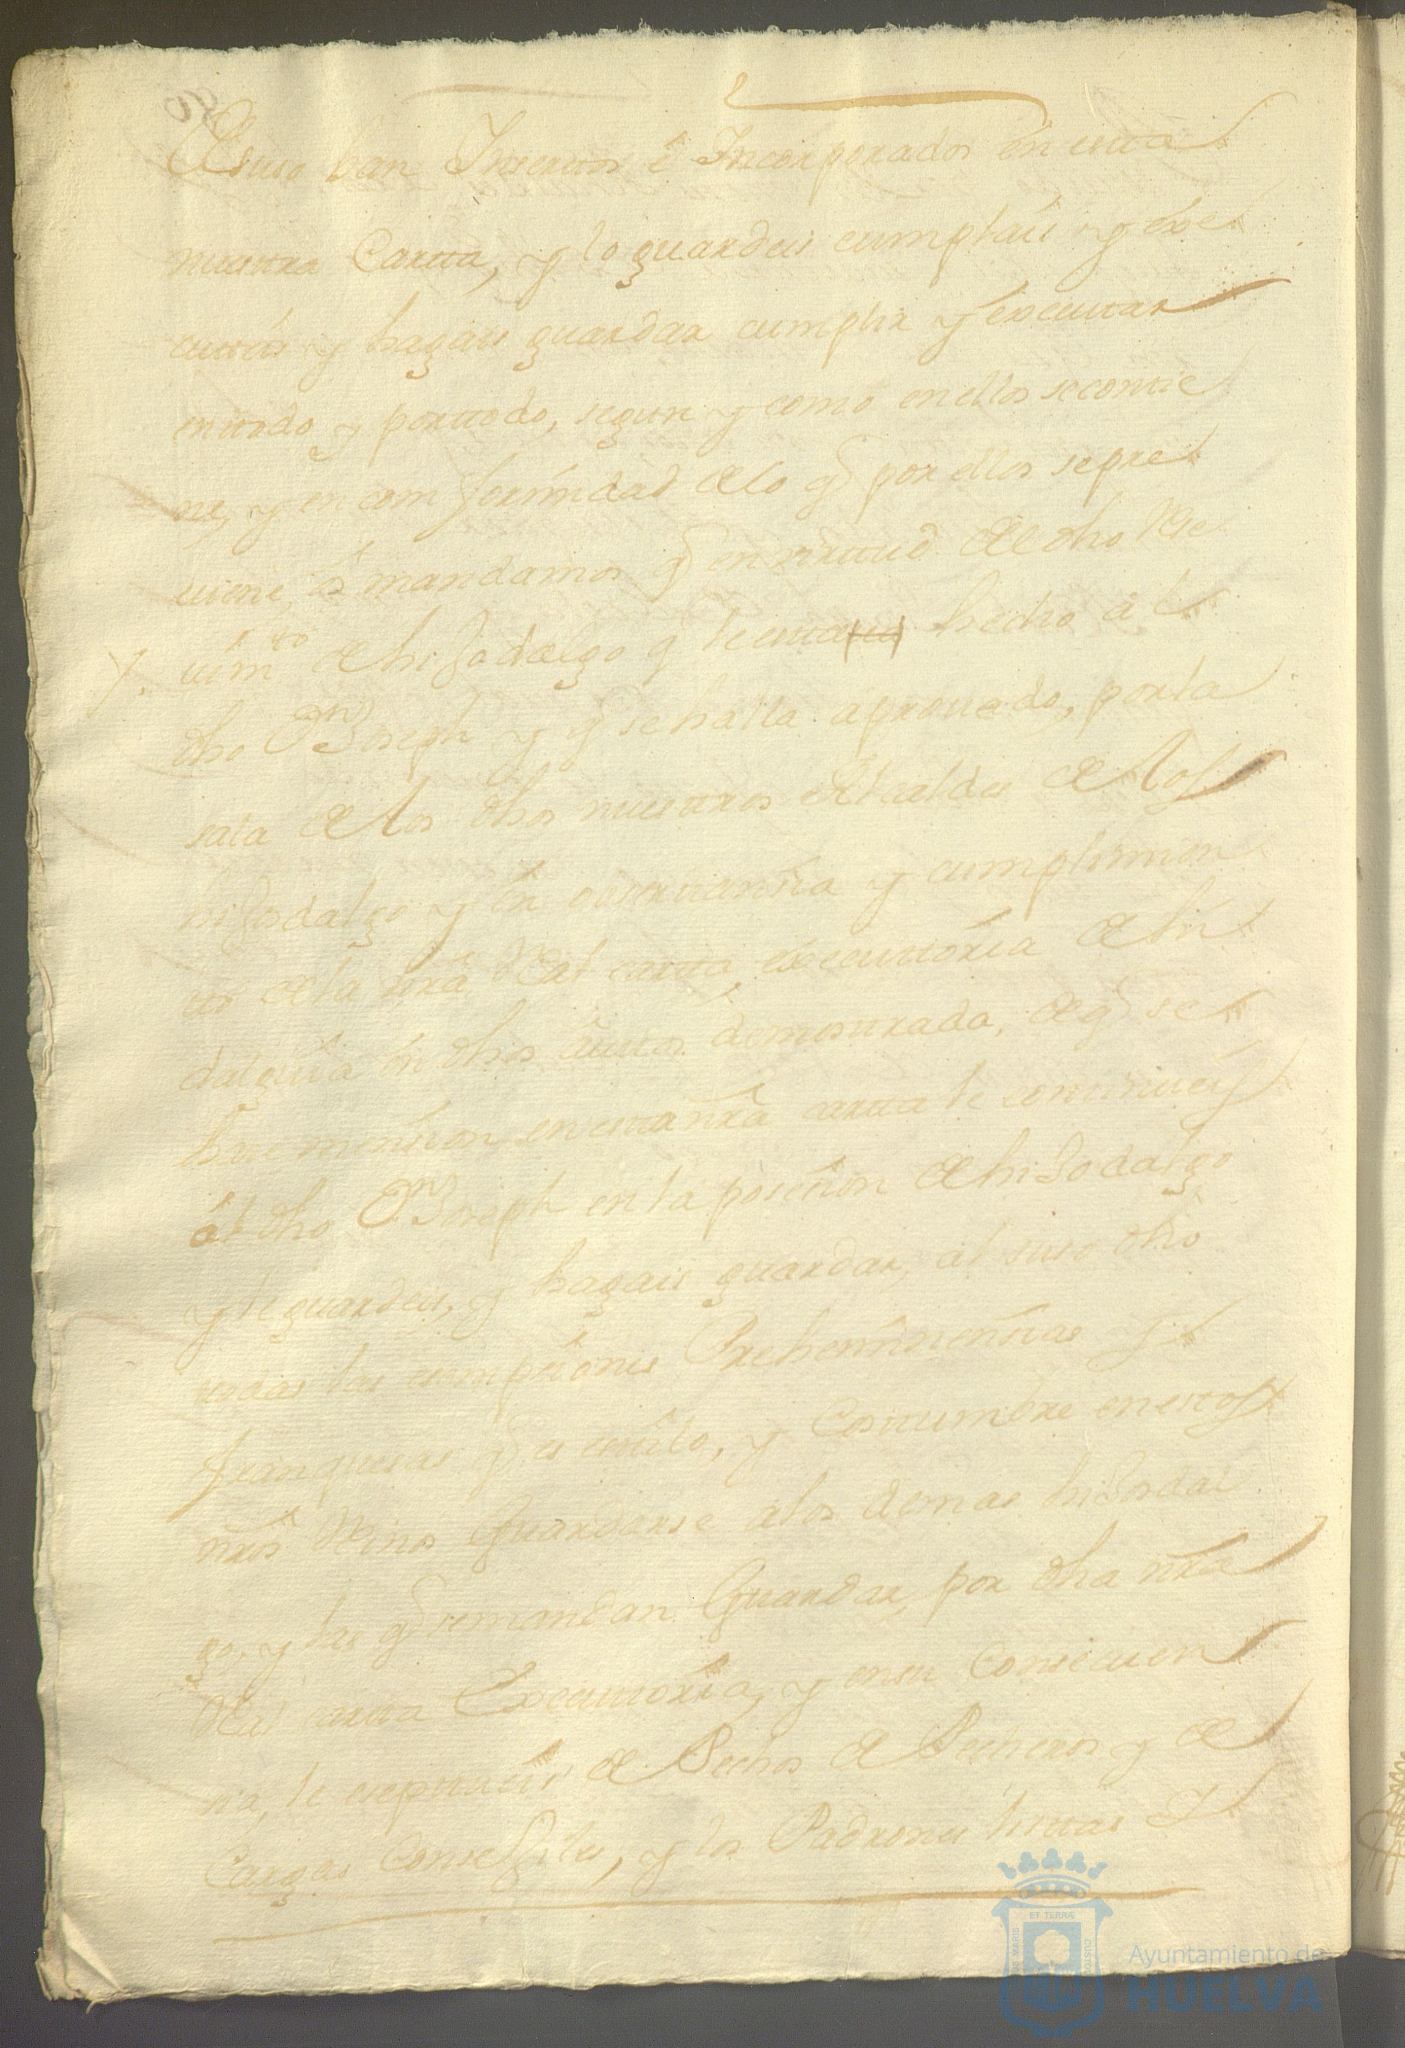 de suso ban Insertos é Incorporados en esta
nuestra Carta, y lo guardeis cumplais y exe
cuteis y hagais guardar cumplir y executar
en todo y por todo, segun y como en ellos se contie
ne, y en comformidad de lo q por ellos se pre
viene, os mandamos q en virtud de dho Re
vim.to de hijodalgo q le esta hecho al
dho Dn Joseph y q se halla aprouado, por la
sala de los dhos nuestros Alcaldes de los
hijosdalgo y en obseruansia y cumplimien
to de la nra Real carta executoria de hi
dalguia en dhos autos demostrada, de q se
hase mension en esta nra carta le continueis
al dho Dn Joseph en la posesion de hijodalgo
y le guardeis, y hagais guardar, al suso dho
todas las esempsiones Preheminensias y
franquesas q es estilo, y Costumbre en estos
nros Rinos Guardarse a los demas hijosdal
go, y las q se mandan Guardar por dha nra
Real carta Executoria, y en su Consecuen
sia, le eseptueis de Pechos de Pecheros y de
Cargas Consejiles, y los Padrones listas y
Ayuntamiento de
HUELVA